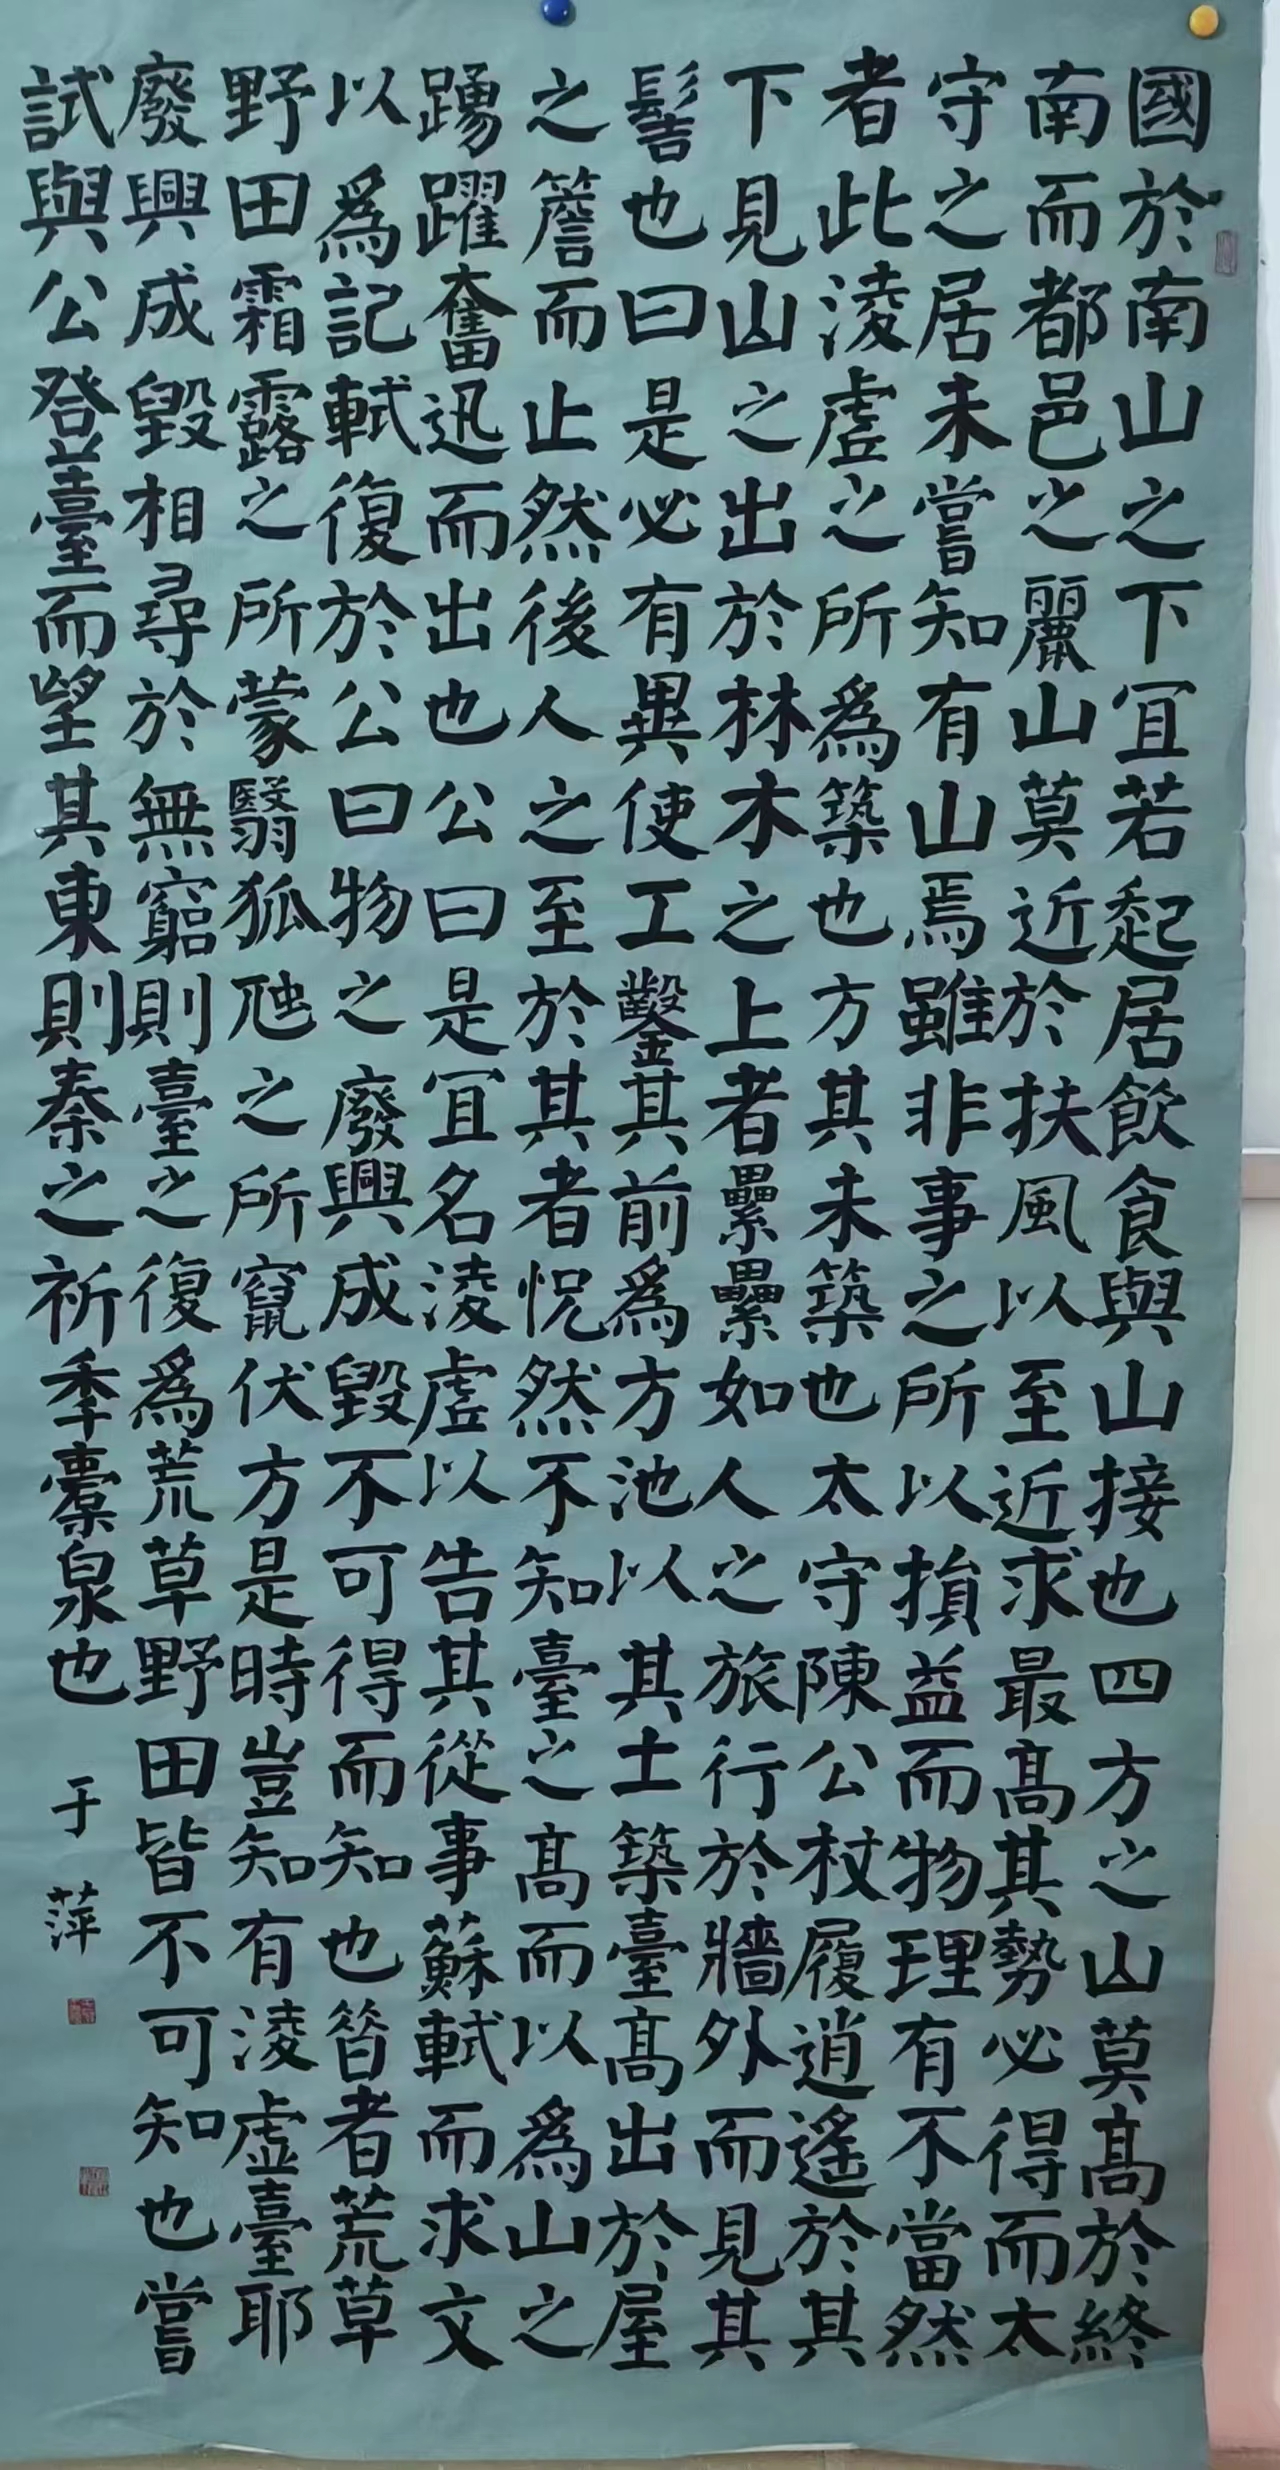 國於南山之下宜若起居飲食與山接也四方之山莫高於終
南而都邑之麗山莫近於扶風以至近求最高其勢必得而太
守之居未嘗知有山焉雖非事之所以損益而物理有不當然
者此淩虛之所為築也方其未築也太守陳公杖履逍遙於其
下見山之出於林木之上者纍纍如人之旅行於牆外而見其
髻也曰是必有異使工鑿其前為方池以其土築臺高出於屋
之簷而止然後人之至於其者怳然不知臺之高而以為山之
踴躍奮迅而出也公曰是宜名淩虛以告其從事蘇軾而求文
以為記軾復於公曰物之廢興成毀不可得而知也昝者荒草
野田霜露之所蒙翳狐虺之所竄伏方是時豈知有淩虛臺耶
廢興成毀相尋於無窮則臺之復為荒草野田皆不可知也嘗
試與公登臺而望其東則秦之祈季橐泉也
于萍